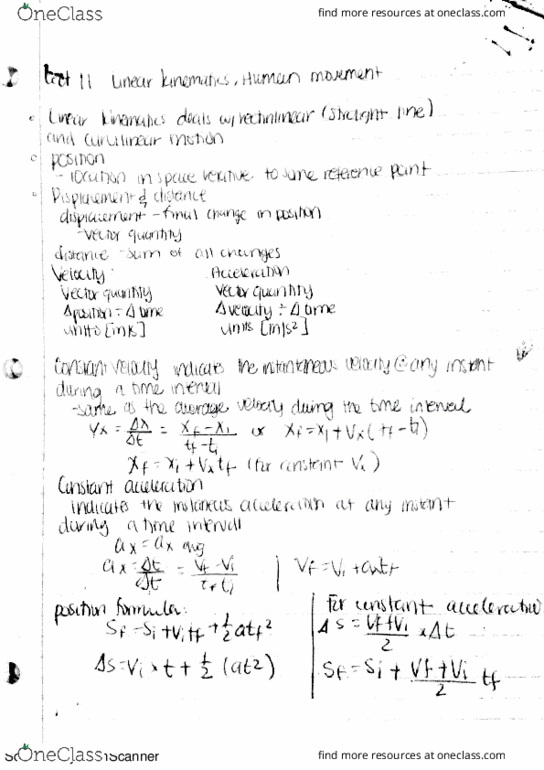 OneClass
find more resources at oneclass.com
Lect 11 Linear kinematics, Human movement
Linear kinematics deals w/ rectinlinear (straight line)
and curvilinear motion
position
- location in space relative to some reference point
Displacement & distance
displacement - final change in position
- vector quantity
distance - sum of all changes
Velocity Acceleration
Vector quantity Vector quantity
Δposition ÷ Δ time Δ velocity ÷ Δ time
units [m/s] units [m/s²]
Constant velocity indicates the instantaneous velocity @ any instant
during a time interval
- same as the average velocity during the time interval
Vx = Δx/Δt = xf - xi / tf - ti or xf = xi + Vx (tf - ti)
xf = xi + Vx tf (for constant Vx)
Constant acceleration
indicates the instaneous acceleration at any instant
during a time interval
ax = ax avg
ax = Δt/Δt = Vf - Vi / tf ti Vf = Vi + axtf
position formula: For constant acceleration
Sf = Si + Vi tf + 1/2 atf² Δs = Vf + Vi / 2 x Δt
Δs = Vi x t + 1/2 (at²) Sf = Si + Vf + Vi / 2 tf
OneClass Scanner
find more resources at oneclass.com